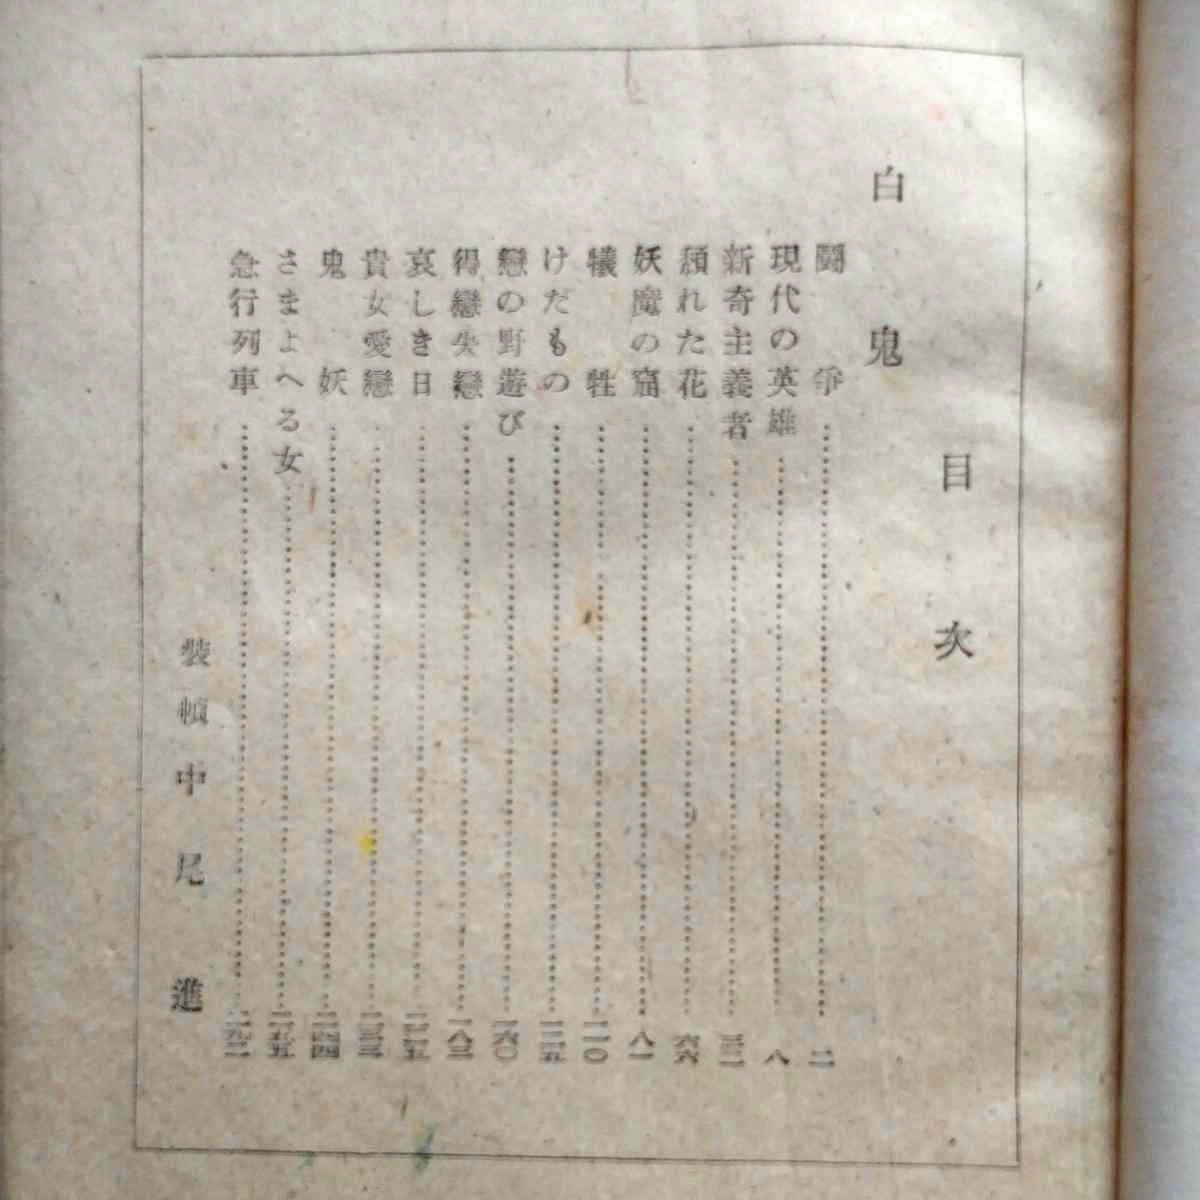 目次
白鬼
闘爭……二
現代の英雄……八
新奇主義者……三二
頽れた花……六六
妖魔の窟……八一
犠牲……一一〇
けだもの……一三五
戀の野遊び……一六〇
得戀失戀……一八三
哀しき日……二一五
貴女愛戀……二三三
鬼妖……二四四
さまよへる女
急行列車
裝幀中尾進